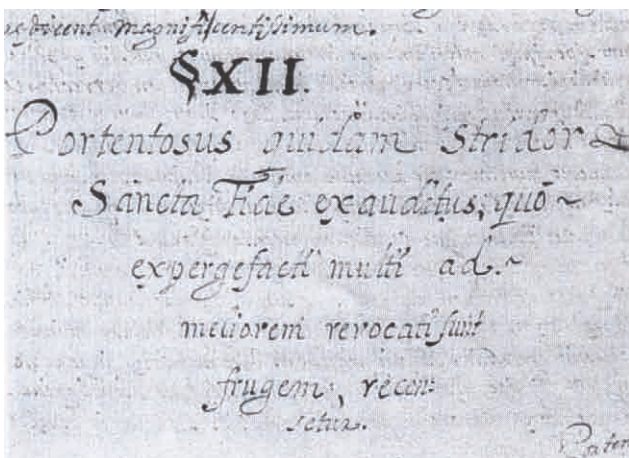 dicent magnificentissimum.
§XII.
Portentosus quidam Stridor
Sancta Fiae exauditus, quō
expergefacti multi ad.
meliorem revocati sunt
frugem, recen:
setur.